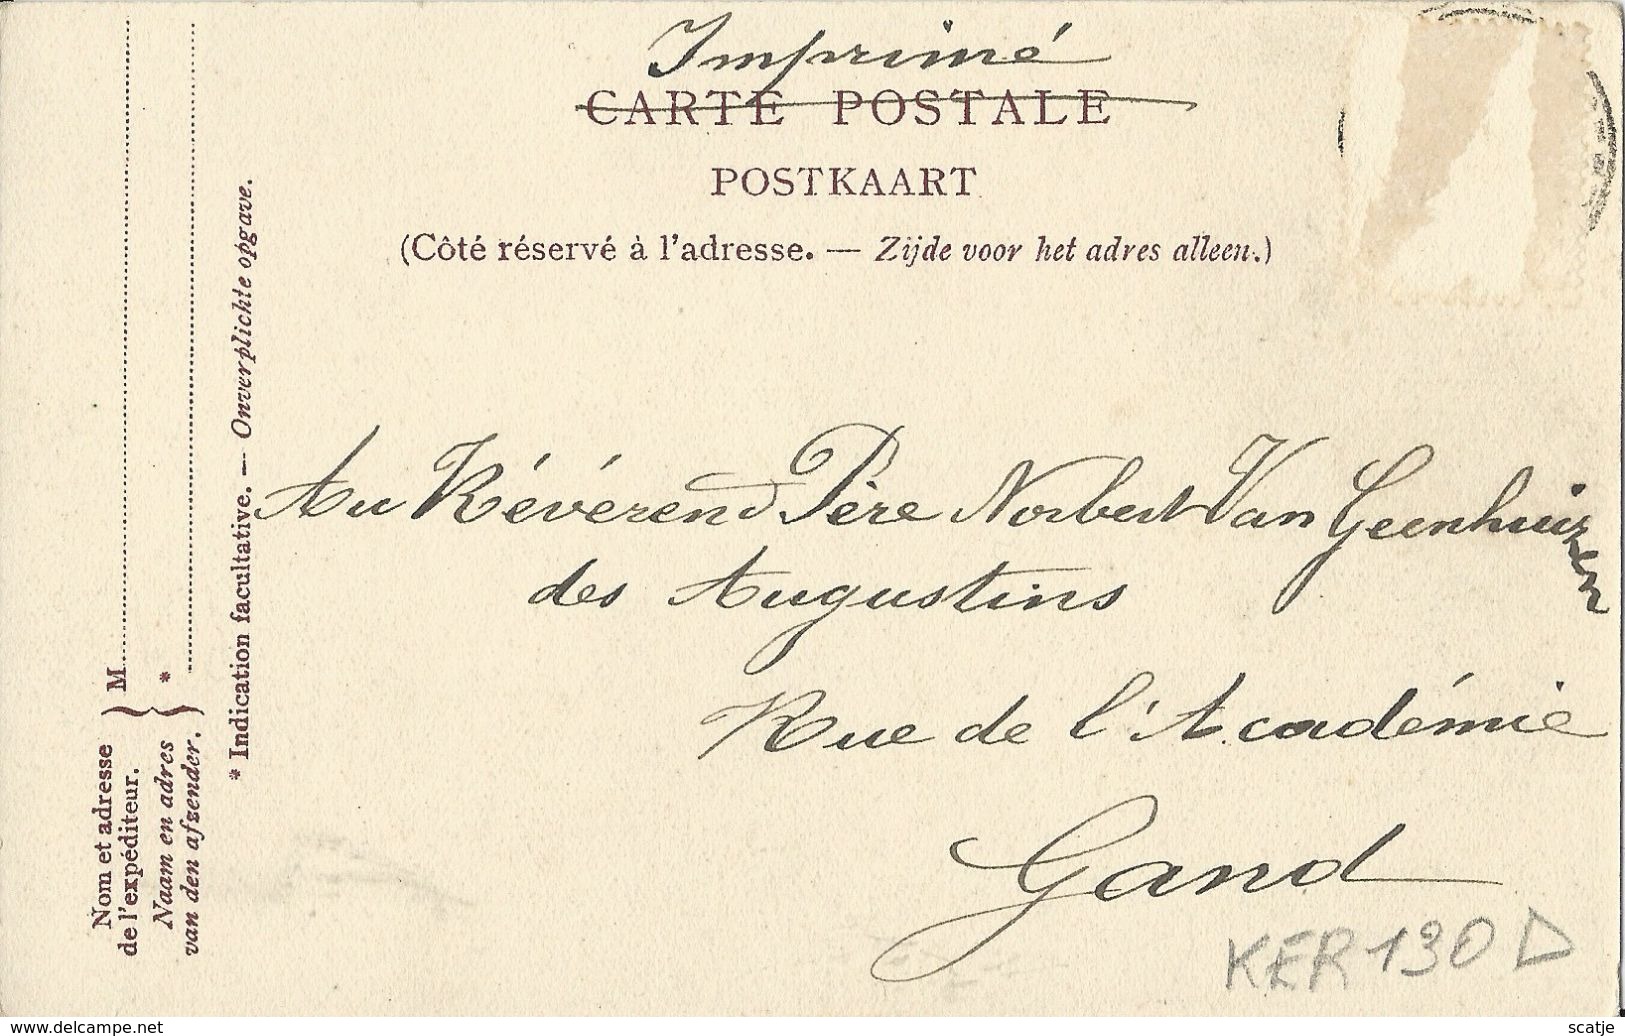 Imprimé
CARTE POSTALE
POSTKAART
(Côté réservé à l'adresse. — Zijde voor het adres alleen.)
Nom et adresse
de l'expéditeur.
Naam en adres
van den afzender.
M
*
* Indication facultative. — Onverplichte opgave.
Au Révérend Père Norbert Van Geenhuizen
des Augustins
Rue de l'Académie
Gand
KER 130 D
www.delcampe.net
scatje